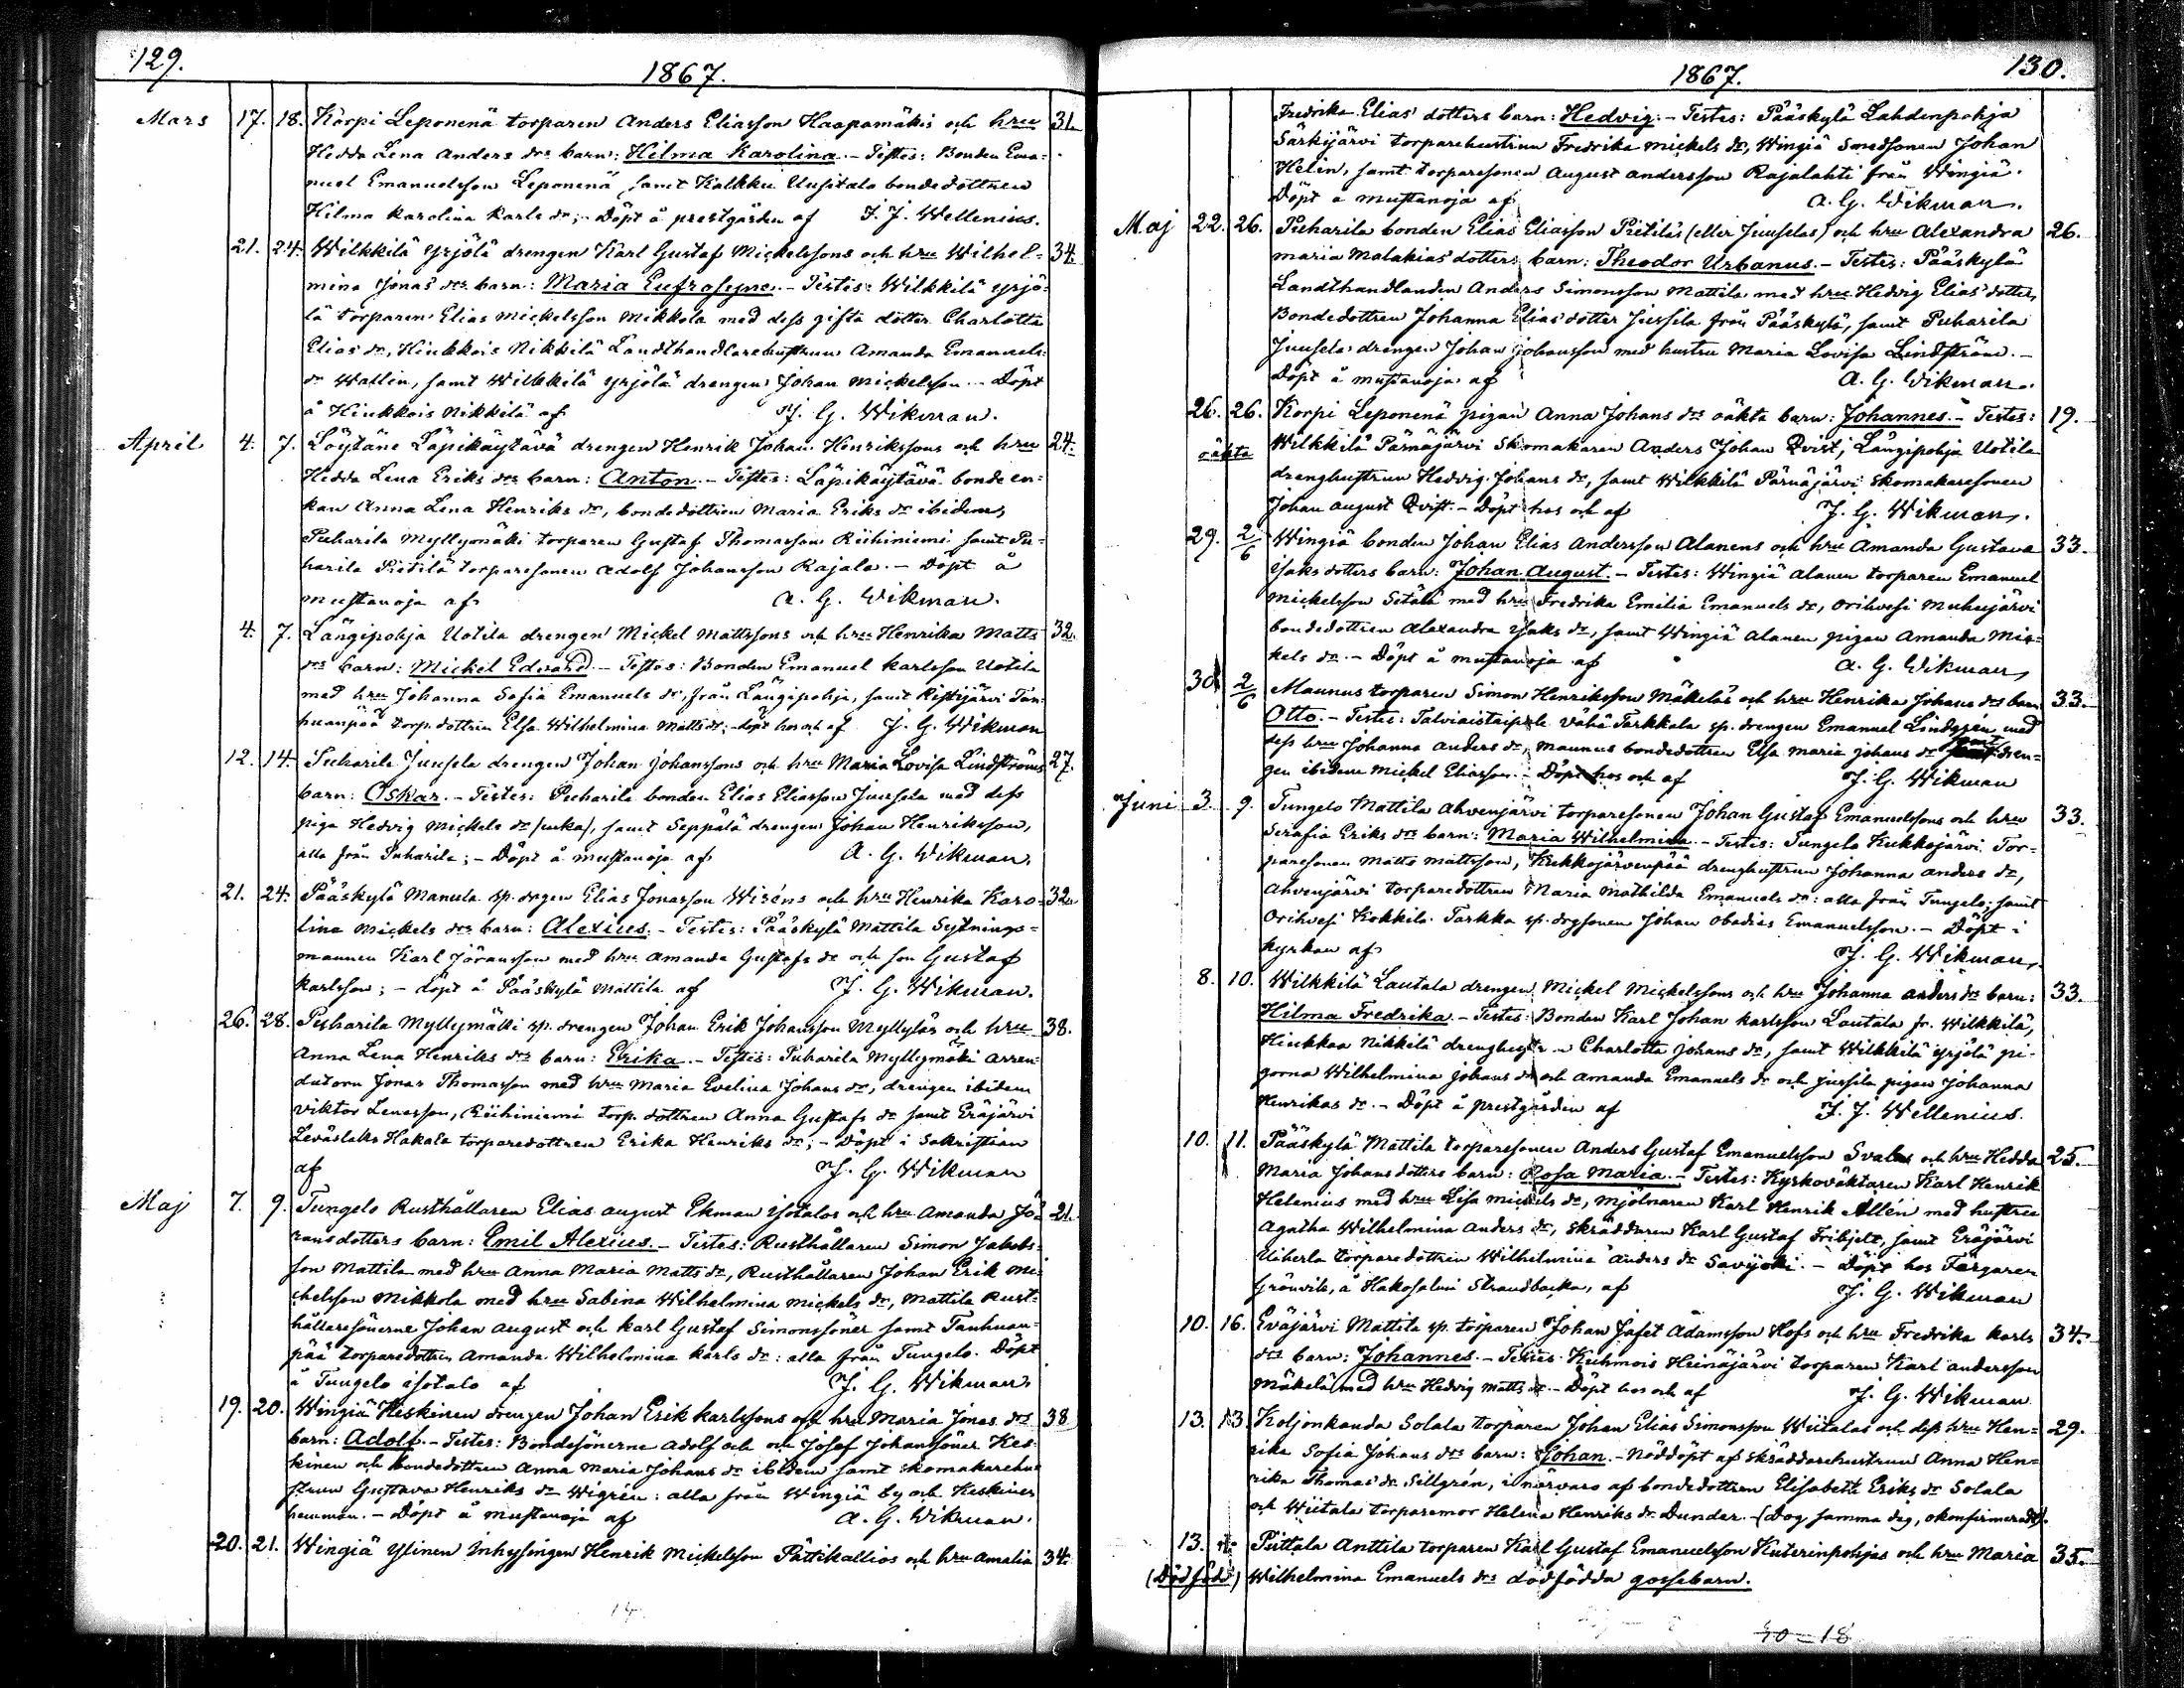 129.
1867.
Mars 17. 18. Korpi Leponenä torparen Anders Eliasson Haapamäkis och hru 31.
Hedda Lena Anders drs barn: Hilma Karolina. - Testes: Bonden Ema-
nuel Emanuelsson Leponenä samt Kalkku Uusitalo bondedottren
Hilma Karolina Karls dr; - Döpt å prestgården af J. J. Wellenius.
21. 24. Wilkkilä Yrjölä drengen Karl Gustaf Mickelssons och hru Wilhel- 34.
mina Jonas drs barn: Maria Eufrosyne. - Testes: Wilkkilä Yrjö-
lä torparen Elias Mickelsson Mikkola med dess gifta dotter Charlotta
Elias dr, Hiukkois Nikkilä Landthandlarehustrun Amanda Emanuels
dr Wallin, samt Wilkkilä Yrjölä drengen Johan Mickelsson. - Döpt
å Hiukkois Nikkilä af J. G. Wikman.
April 4. 7. Löytäne Läpikäytävä drengen Henrik Johan Henrikssons och hru 24.
Hedda Lena Eriks drs barn: Anton. - Testes: Läpikäytävä bondeen-
kan Anna Lena Henriks dr, bondedottren Maria Eriks dr ibidem,
Puharila Myllymäki torparen Gustaf Thomasson Riihiniemi samt Pu-
harila Pietilä torparesonen Adolf Johansson Rajala. - Döpt å
Mustanoja af A. G. Wikman.
4. 7. Längipohja Uotila drengen Mickel Mattssons och hru Henrika Matts 32.
drs barn: Mickel Edvard. - Testes: Bonden Emanuel Karlsson Uotila
med hru Johanna Sofia Emanuels dr, från Längipohja, samt Ristijärvi Tan-
huanpää torp. dottren Elsa Wilhelmina Matts dr; - döpt hos och af J. G. Wikman
12. 14. Puharila Juusela drengen Johan Johanssons och hru Maria Lovisa Lindströms 27.
barn: Oskar. - Testes: Puharila bonden Elias Eliasson Juusela med dess
piga Hedvig Mickels dr (enka), samt Seppälä drengen Johan Henriksson,
alla från Puharila; - Döpt å Mustanoja af A. G. Wikman.
21. 24. Pääskylä Manula sp. drgen Elias Jonasson Wiséns och hru Henrika Karo- 32.
lina Mickels drs barn: Alexius. - Testes: Pääskylä Mattila Sytnings-
mannen Karl Jöransson med hru Amanda Gustafs dr och son Gustaf
Karlsson; - döpt å Pääskylä Mattila af J. G. Wikman.
26. 28. Puharila Myllymäki sp. drengen Johan Erik Johansson Myllyläs och hru 38.
Anna Lena Henriks drs barn: Erika. - Testes: Puharila Myllymäki arren-
datorn Jonas Thomasson med hru Maria Evelina Johans dr, drengen ibidem
Viktor Lenasson, Riihiniemi torp. dottren Anna Gustafs dr samt Eräjärvi
Leväslaks Hakala torparedottren Erika Henriks dr; - Döpt i sakristian
af J. G. Wikman
Maj 7. 9. Tungelo Rusthållaren Elias August Ekman Isotalos och hru Amanda Jö- 21.
rans dotters barn: Emil Alexius. - Testes: Rusthållaren Simon Jakobs-
son Mattila med hru Anna Maria Matts dr, Rusthållaren Johan Erik Mi-
chelsson Mikkola med hru Sabina Wilhelmina Mickels dr, Mattila Rust-
hållaresönerne Johan August och Karl Gustaf Simonssöner samt Tanhuan-
pää torparedottren Amanda Wilhelmina Karls dr: alla från Tungelo. Döpt
å Tungelo Isotalo af J. G. Wikman.
19. 20. Wingiä Keskinen drengen Johan Erik Karlssons och hru Maria Jonas drs 38
barn: Adolf. - Testes: Bondesönerne Adolf och och Josef Johanssöner Kes-
kinen och bondedottren Anna Maria Johans dr ibidem samt skomakarehu-
strun Gustava Henriks dr Wigrén: alla från Wingiä by och Keskinen
hemman. - Döpt å Mustanoja af A. G. Wikman.
20. 21. Wingiä Ylinen Inhysingen Henrik Mickelsson Pättikallios och hru Amalia 34.
1867. 130.
Fredrika Elias dotters barn: Hedvig. - Testes: Pääskylä Lahdenpohja
Särkijärvi torparehustrun Fredrika Mickels dr, Wingiä Smedsonen Johan
Helin, samt torparesonen August Andersson Rajalahti från Wingiä.
Döpt å Mustanoja af A. G. Wikman.
Maj 22. 26. Puharila bonden Elias Eliasson Pietiläs (eller Juuselas) och hru Alexandra 26.
Maria Malakias dotters barn: Theodor Urbanus. - Testes: Pääskylä
Landthandlanden Anders Simonsson Mattila med hru Hedvig Elias dotter,
Bondedottren Johanna Elias dotter Jussila från Pääskylä, samt Puharila
Juusela drengen Johan Johansson med hustru Maria Lovisa Lindström. -
Döpt å Mustanoja af A. G. Wikman.
26. 26. Korpi Leponenä pigan Anna Johans drs oäkta barn: Johannes. - Testes: 19.
oäkta Wilkkilä Pärnäjärvi Skomakaren Anders Johan Qvist, Längipohja Uotila
drenghustrun Hedvig Johans dr, samt Wilkkilä Pärnäjärvi skomakaresonen
Johan August Qvist. - Döpt hos och af J. G. Wikman.
29. 2/6 Wingiä bonden Johan Elias Andersson Alanens och hru Amanda Gustava 33.
Isaks dotters barn: Johan August. - Testes: Wingiä Alanen torparen Emanuel
Mickelsson Setälä med hru Fredrika Emilia Emanuels dr, Orihvesi Muhujärvi
bondedottren Alexandra Isaks dr, samt Wingiä Alanen pigan Amanda Mic-
kels dr. - Döpt å Mustanoja af A. G. Wikman,
30. 2/6 Maunus torparen Simon Henriksson Mäkeläs och hru Henrika Johans drs barn 33.
Otto. - Testes: Talviaistaipale Vähä Tarkkala sp. drengen Emanuel Lindgrén med
dess hru Johanna Anders dr, Maunus bondedottren Elsa Maria Johans dr samt dren-
gen ibidem Mickel Eliasson. - Döpt hos och af J. G. Wikman
Juni 3. 9. Tungelo Mattila Ahvenjärvi torparesonen Johan Gustaf Emanuelssons och hru 33.
Serafia Eriks drs barn: Maria Wilhelmina. - Testes: Tungelo Kukkojärvi Tor-
paresonen Matts Mattsson, Kukkojärvenpää drenghustrun Johanna Anders dr,
Ahvenjärvi torparedottren Maria Mathilda Emanuels dr: alla från Tungelo; samt
Orihvesi Kokkila Tarkka sp. drgsonen Johan Obadias Emanuelsson. - Döpt i
kyrkan af J. G. Wikman.
8. 10. Wilkkilä Lautala drengen Mickel Mickelssons och hru Johanna Anders drs barn: 33.
Hilma Fredrika. - Testes: Bonden Karl Johan Karlsson Lautala fr. Wilkkilä,
Hiukkaa Nikkilä drenghustrun Charlotta Johans dr, samt Wilkkilä Yrjölä pi-
gorna Wilhelmina Johans dr och Amanda Emanuels dr och Jussila pigan Johanna
Henrikas dr. - Döpt å prestgården af J. J. Wellenius.
10. 11. Pääskylä Mattila torparesonen Anders Gustaf Emanuelsson Svalns och hru Hedda 25.
Maria Johans dotters barn: Rosa Maria. - Testes: Kyrkovaktaren Karl Henrik
Helenius med hru Lisa Mickels dr, Mjölnaren Karl Henrik Allén med hustru
Agatha Wilhelmina Anders dr, Skräddaren Karl Gustaf Fribjelt, samt Eräjärvi
Uiherla torparedottren Wilhelmina Anders dr Savijoki. - Döpt hos Färgaren
Grönvik, å Hakosalmi Strandbacka, af J. G. Wikman
10. 16. Eväjärvi Mattila sp. torparen Johan Jafet Adamsson Hofs och hru Fredrika Karls 34.
drs barn: Johannes. - Testes. Kuhmois Heinäjärvi torparen Karl Andersson
Mäkelä med hru Hedvig Matts dr. - Döpt hos och af J. G. Wikman
13. 13. Koljonkanda Solala torparen Johan Elias Simonsson Wiitalas och dess hru Hen- 29.
rika Sofia Johans drs barn: Johan. - Nöddöpt af skräddarehustrun Anna Hen-
rika Thomas dr Sillgrén, i närvaro af bondedottren Elisabeth Eriks dr Solala
och Wiitala torparemor Helena Henriks dr Dunder. - (Dog samma dag, okonfirmeradt).
13. Puttala Anttila torparen Karl Gustaf Emanuelsson Kuterinpohjas och hru Maria 35.
(Dödfödd) Wilhelmina Emanuels drs dödfödda gossebarn.
40-18